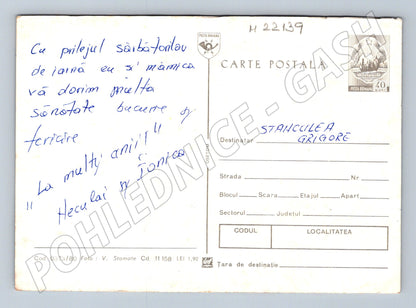 Cu prilejul sărbătorilor
de iarnă eu și mămica
vă dorim multa
sănătate bucurie și
fericire
"La mulți ani!!"
Neculai și Ionica
Foto: V. Stamate Cd. 11158 LEI 1,90
M 22139
POSTA ROMANA
CARTE POSTALĂ
POSTA ROMANA
40
Destinatar STANCULEA
GRIGORE
Strada Nr.
Blocul Scara Etajul Apart.
Sectorul Județul
CODUL LOCALITATEA
Țara de destinație
POHLEDNICE - GASH